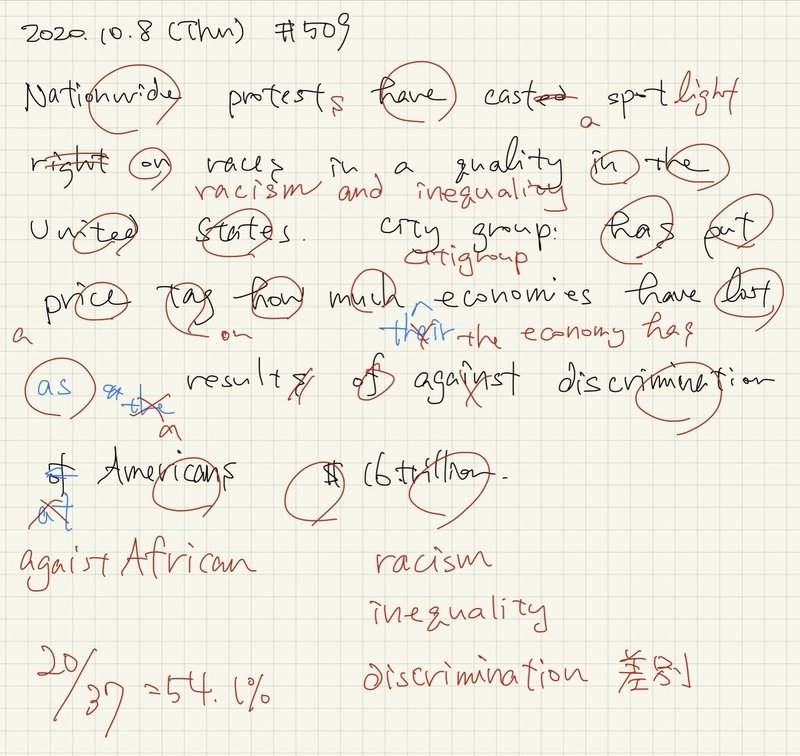 2020.10.8 (Thu) #509
Nationwide protests have casted a spot light
right on races in a quality in the
racism and inequality
United States. City group: has put
citigroup
price tag how much economies have lost
a on their the economy has
as a the results of against discrimination
a
of Americans $ 16 trillion.
at
agaist African racism
inequality
20/37 = 54.1% discrimination 差別